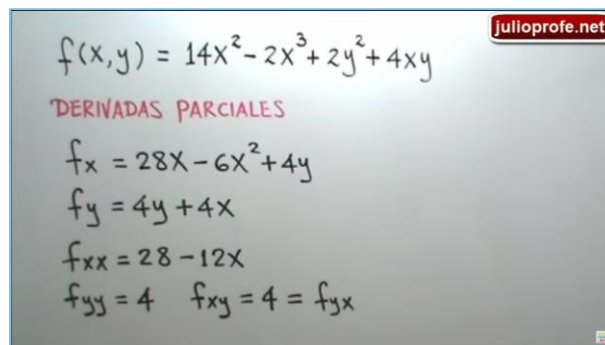 julioprofe.net
f(x,y) = 14x² - 2x³ + 2y² + 4xy
DERIVADAS PARCIALES
fx = 28x - 6x² + 4y
fy = 4y + 4x
fxx = 28 - 12x
fyy = 4 fxy = 4 = fyx